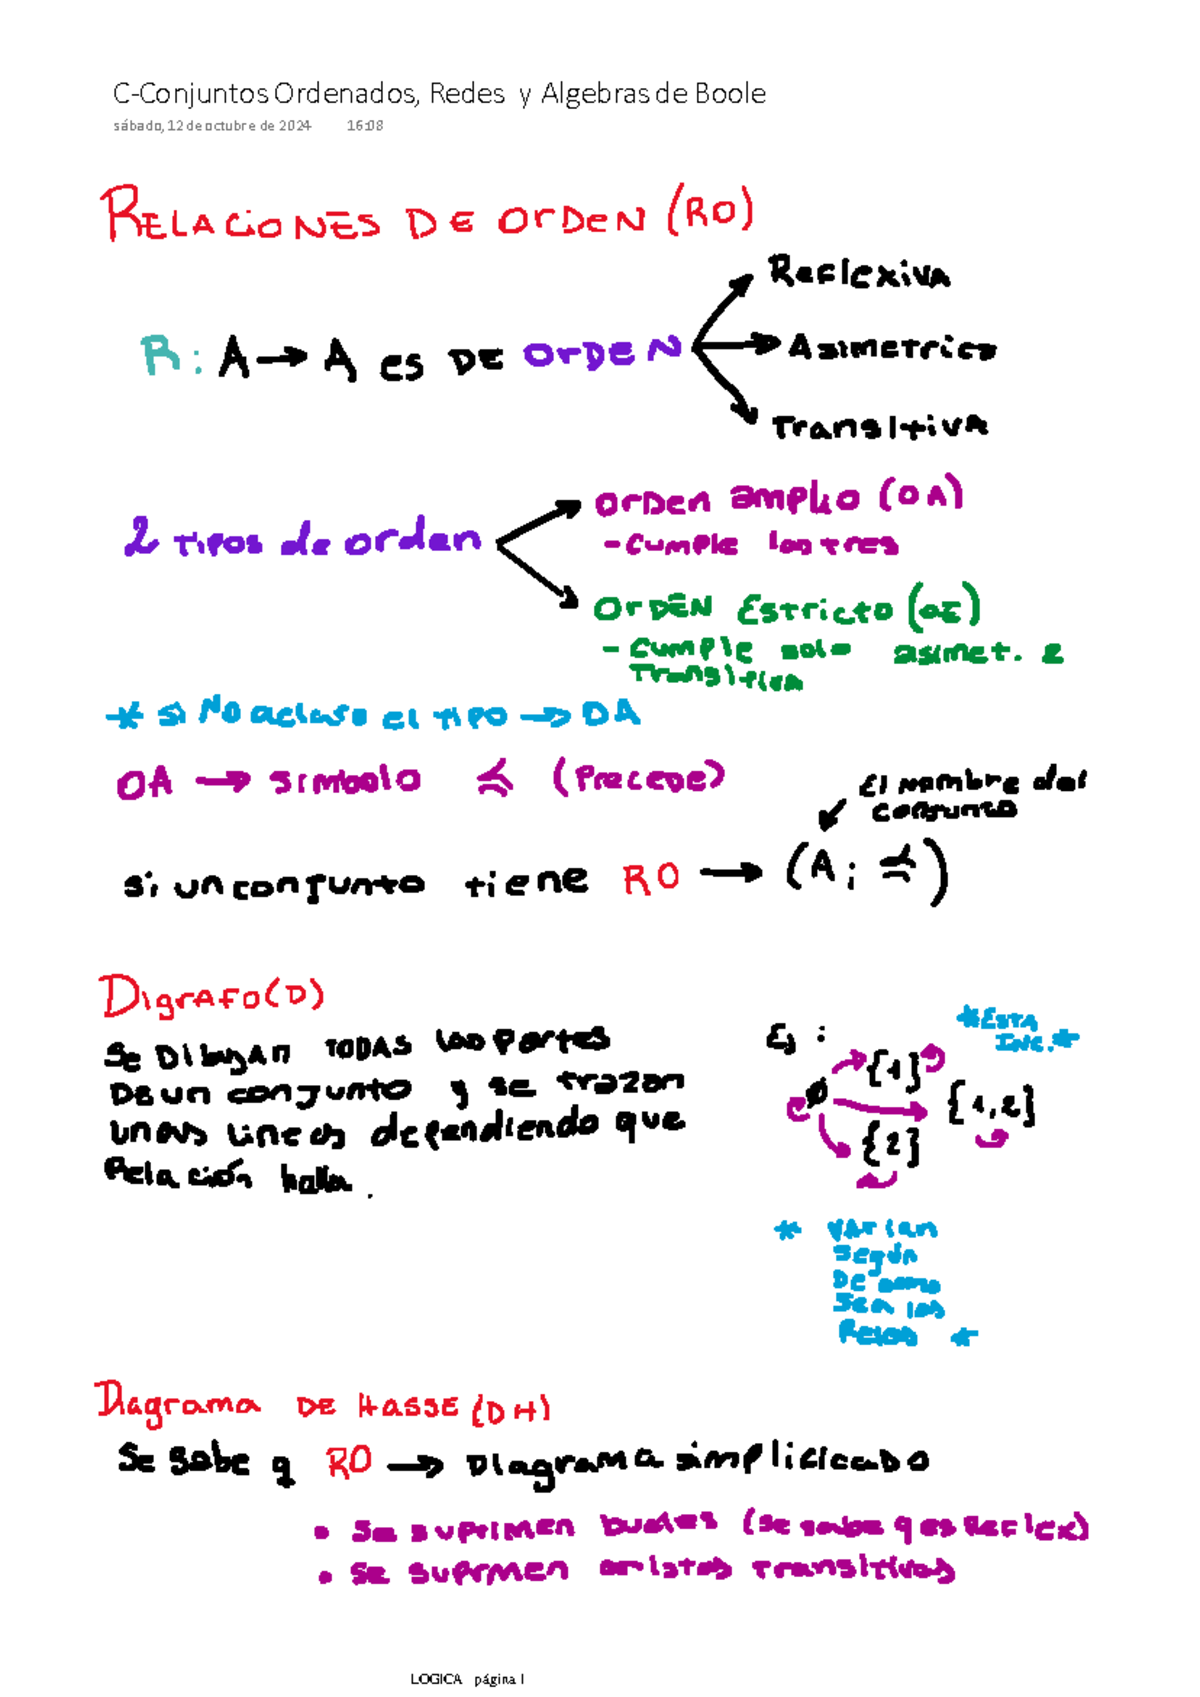 C-Conjuntos Ordenados, Redes y Algebras de Boole
sábado, 12 de octubre de 2024 16:08
RELACIONES DE ORDEN (RO)
Reflexiva
R: A → A es DE ORDEN
Asimetrica
Transitiva
Orden amplio (OA)
2 tipos de orden
- cumple los tres
ORDEN Estricto (OE)
- cumple solo asimet. e
Transitiva
* si No acloso el tipo → OA
OA → simbolo ≼ (Precede)
El nombre del
conjunto
si un conjunto tiene RO → (A; ≼)
DigraFo (D)
*Esta
Inc.*
Ej:
Se Dibujan TODAS las partes
{1}
De un conjunto y se trazan
∅
{1,2}
unas lineas dependiendo que
{2}
Relación halla.
* Varian
según
De como
sea las
Relas *
Diagrama DE HASSE (DH)
Se sabe q RO → Diagrama simplicicado
• Se suprimen bucles (se sabe q es Reflex)
• se suprmen aristas transitivas
LOGICA página 1